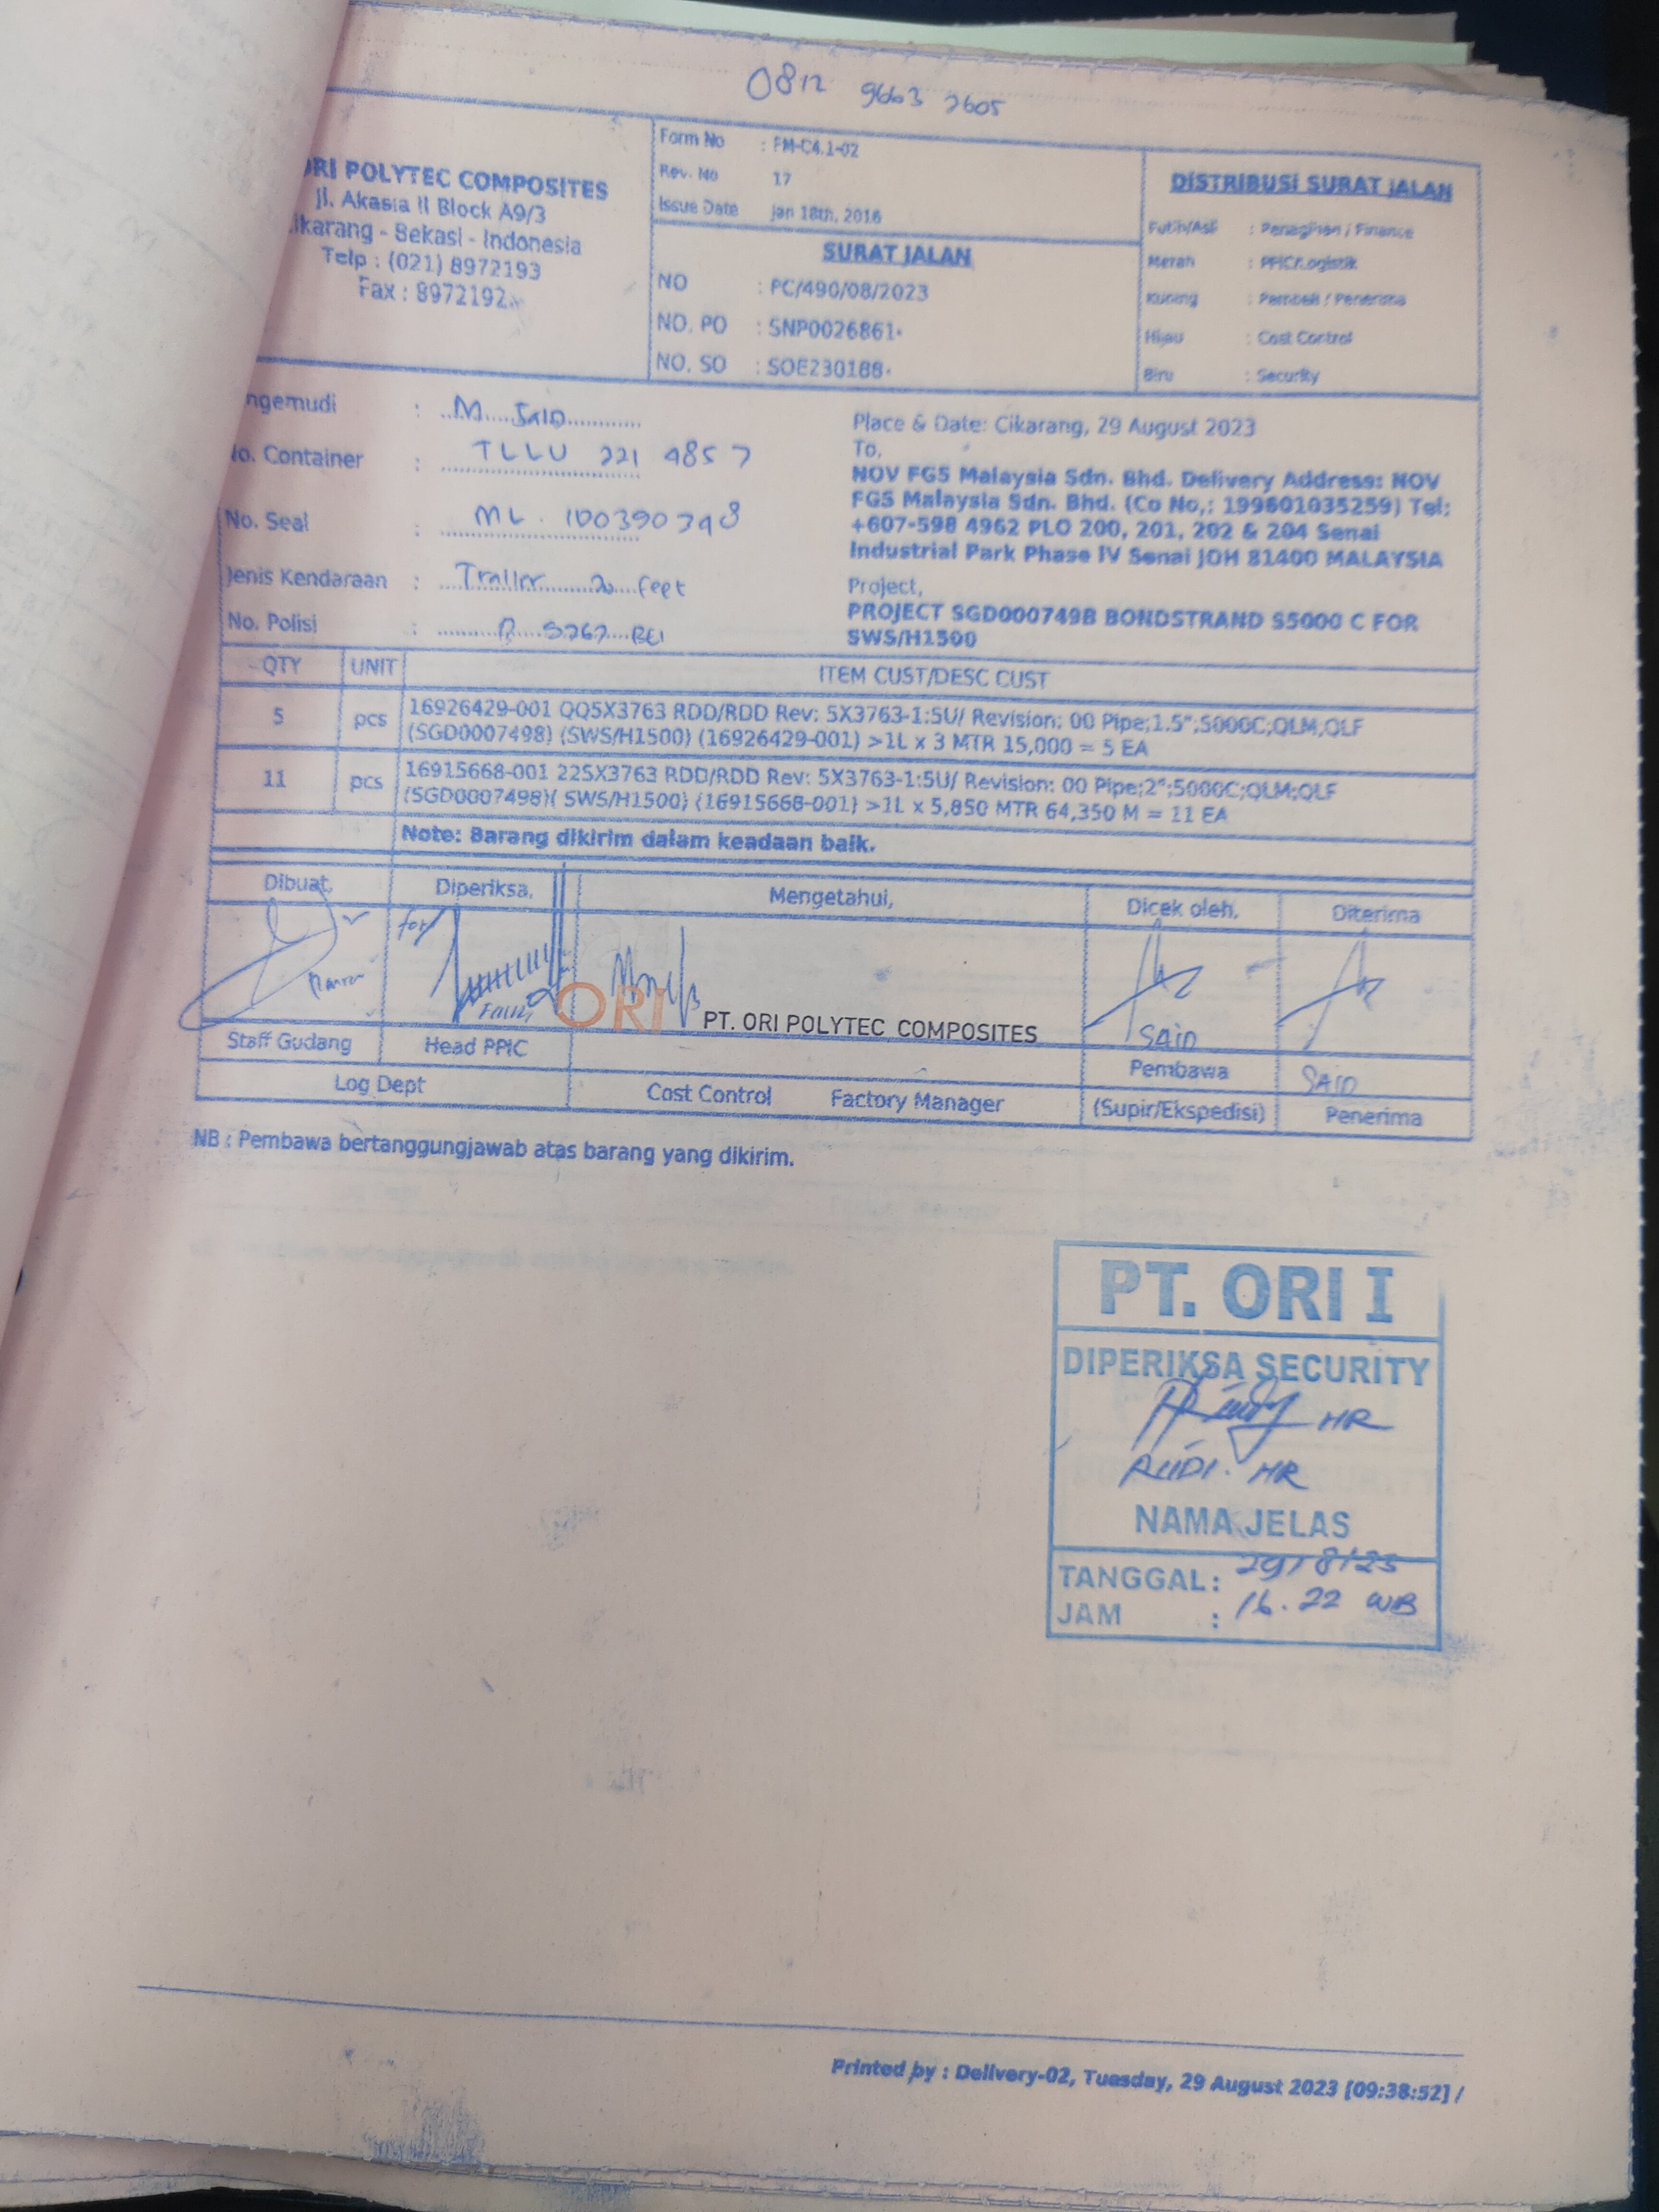 0812 9663 2605
ORI POLYTEC COMPOSITES
Jl. Akasia II Block A9/3
ikarang - Bekasi - Indonesia
Telp : (021) 8972193
Fax : 8972192
Form No : FM-C4.1-02
Rev. No 17
Issue Date Jan 18th, 2016
SURAT JALAN
NO : PC/490/08/2023
NO. PO : SNP0026861
NO. SO : SOE230188
DISTRIBUSI SURAT JALAN
Putih/Asli : Penagihan / Finance
Merah : PPIC/Logistik
Kuning : Pembeli / Penerima
Hijau : Cost Control
Biru : Security
ngemudi : M SAID
No. Container : TLLU 221 4857
No. Seal : ML. 100390398
Jenis Kendaraan : Trailer 20 feet
No. Polisi :
Place & Date: Cikarang, 29 August 2023
To,
NOV FGS Malaysia Sdn. Bhd. Delivery Address: NOV
FGS Malaysia Sdn. Bhd. (Co No,: 199601035259) Tel:
+607-598 4962 PLO 200, 201, 202 & 204 Senai
Industrial Park Phase IV Senai JOH 81400 MALAYSIA
Project,
PROJECT SGD0007498 BONDSTRAND S5000 C FOR
SWS/H1500
QTY UNIT ITEM CUST/DESC CUST
5 pcs 16926429-001 QQ5X3763 RDD/RDD Rev: 5X3763-1:5U/ Revision: 00 Pipe;1.5";5000C;QLM,QLF
(SGD0007498) (SWS/H1500) (16926429-001) >1L x 3 MTR 15,000 = 5 EA
11 pcs 16915668-001 225X3763 RDD/RDD Rev: 5X3763-1:5U/ Revision: 00 Pipe;2";5000C;QLM;QLF
(SGD0007498)( SWS/H1500) (16915668-001) >1L x 5,850 MTR 64,350 M = 11 EA
Note: Barang dikirim dalam keadaan baik.
Dibuat, Diperiksa, Mengetahui, Dicek oleh, Diterima
for
ORI PT. ORI POLYTEC COMPOSITES
SAID
SAID
Staff Gudang Head PPIC Pembawa
Log Dept Cost Control Factory Manager (Supir/Ekspedisi) Penerima
NB : Pembawa bertanggungjawab atas barang yang dikirim.
PT. ORI I
DIPERIKSA SECURITY
HR
RUDI. HR
NAMA JELAS
TANGGAL : 29/8/23
JAM : 16.22 WIB
Printed by : Delivery-02, Tuesday, 29 August 2023 [09:38:52] /